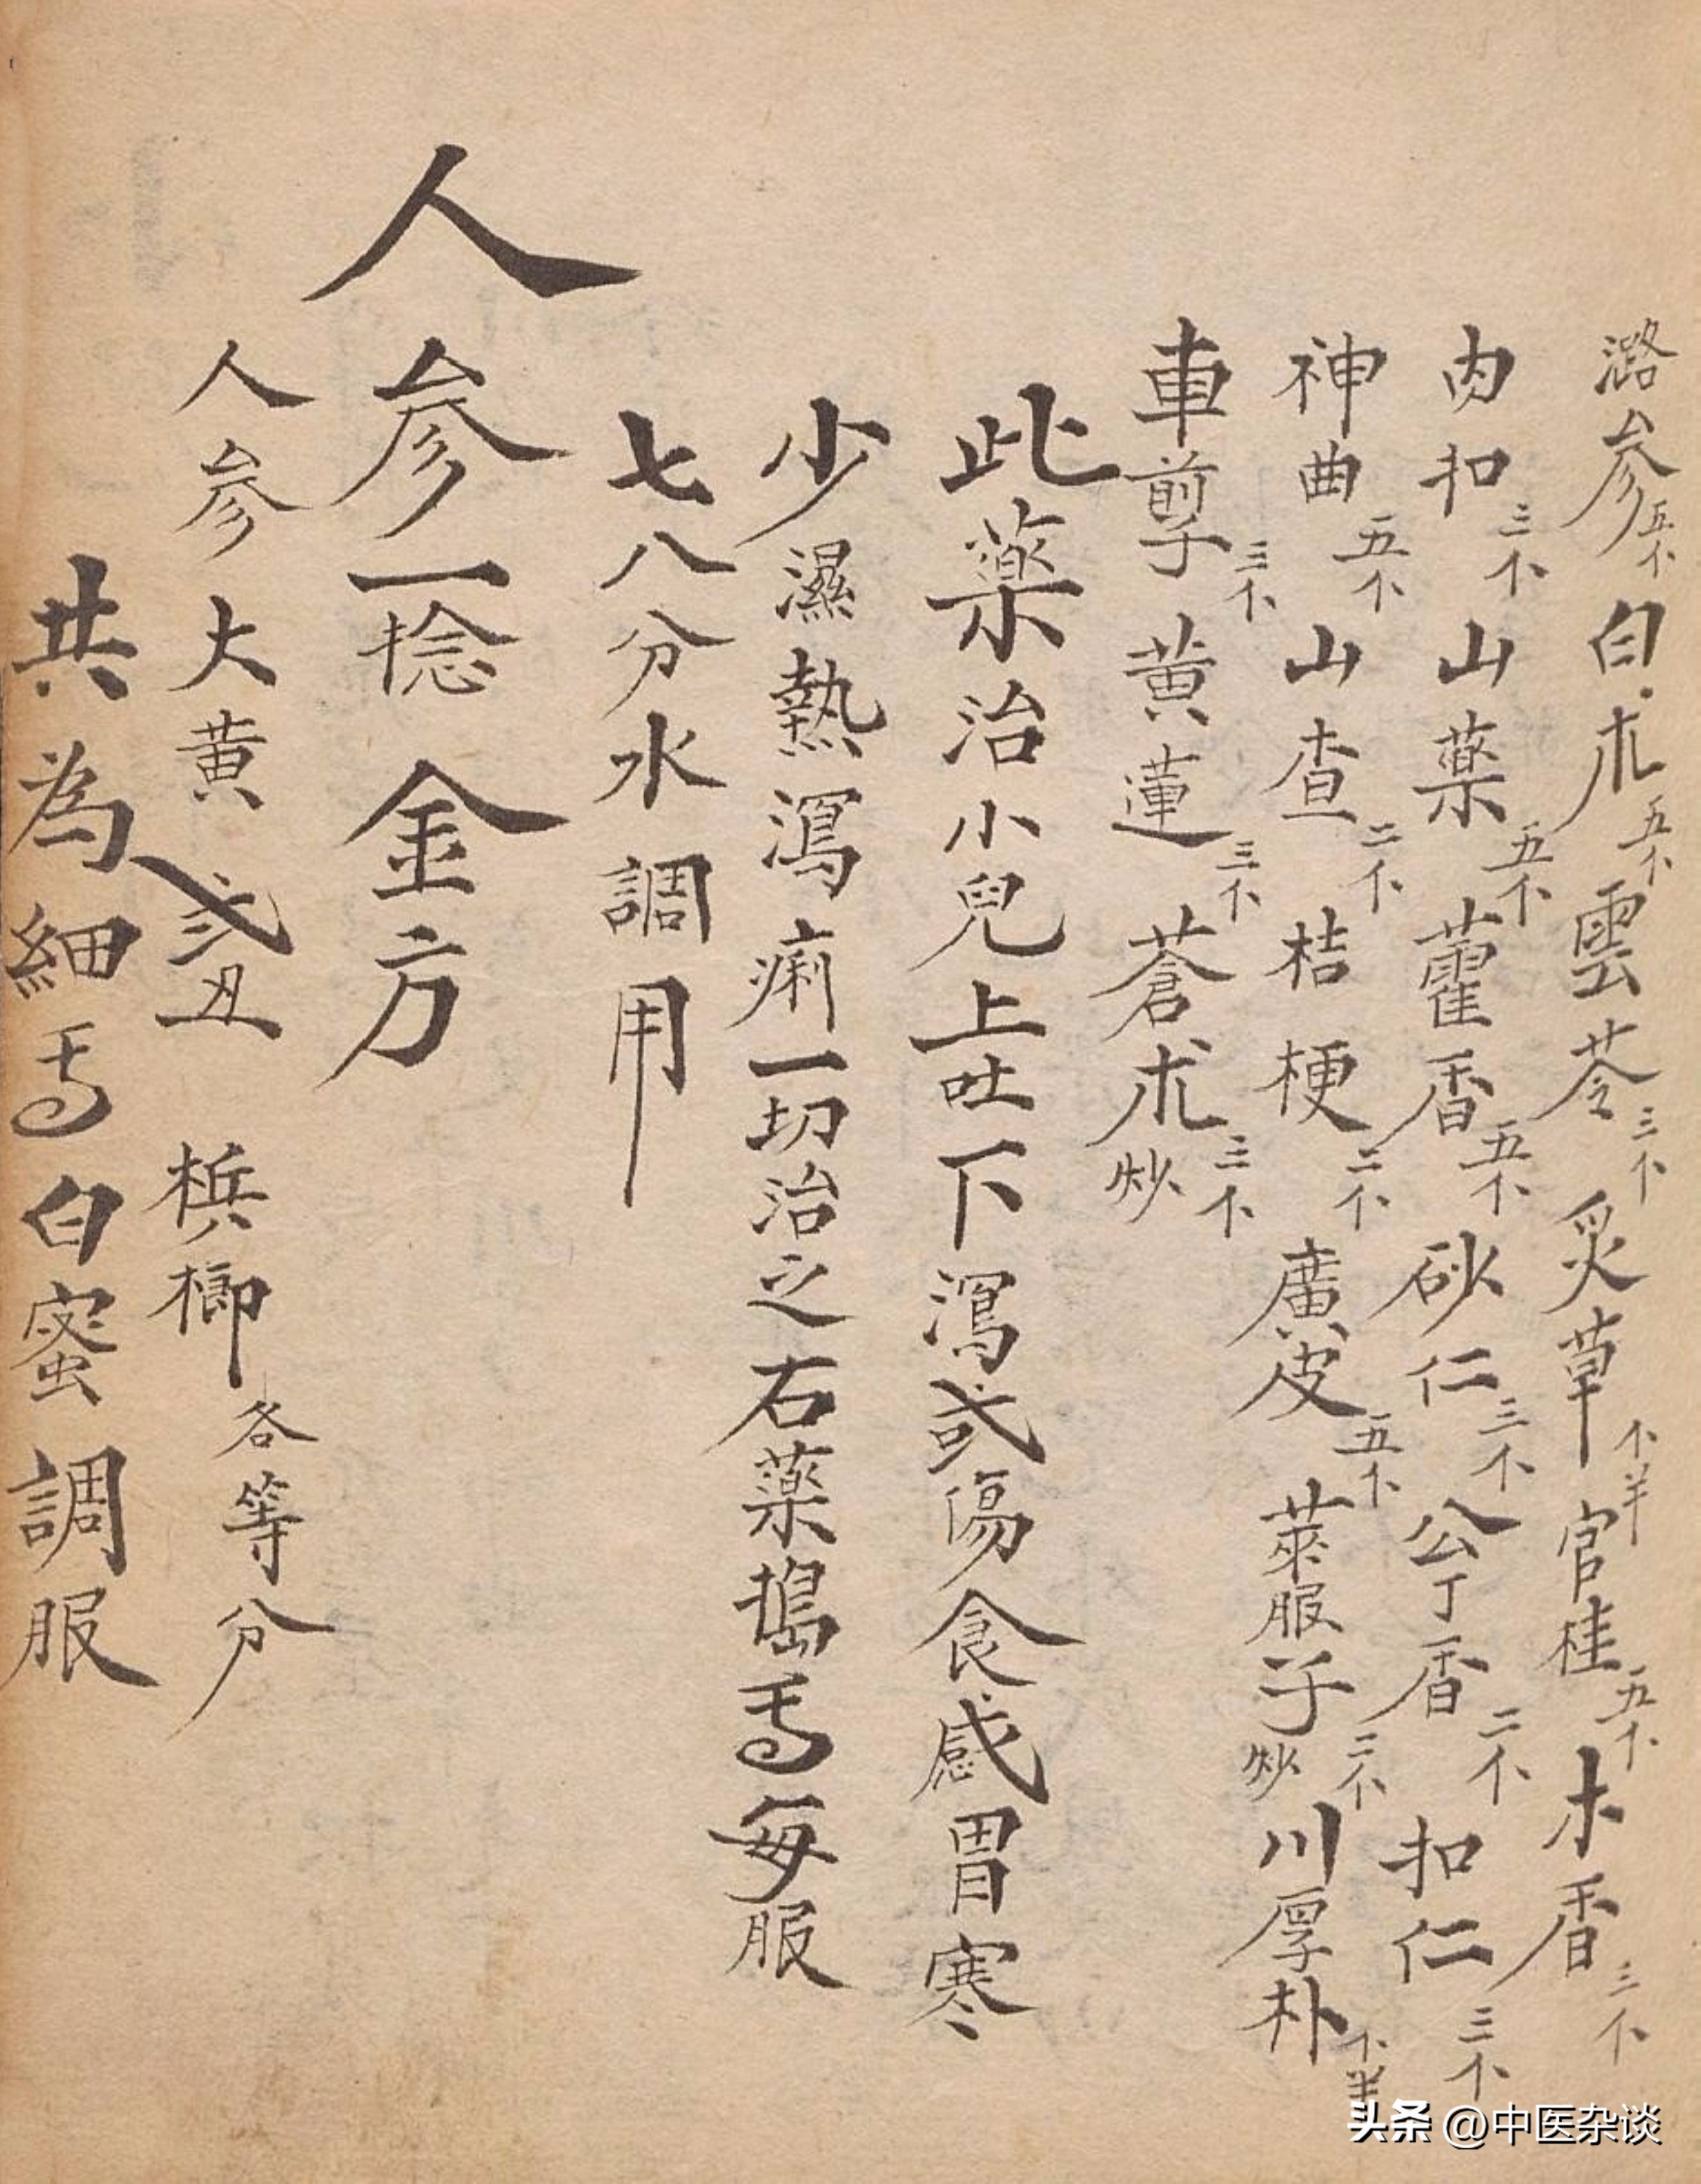 潞参五个白术五个雲苓三个炙草个半官桂五个木香三个
肉扣三个山藥五个藿香五个砂仁三个公丁香二个扣仁三个
神曲五个山查二个桔梗二个廣皮五个萊服子炒三个川厚朴个半
車前子三个黄蓮三个蒼术炒三个
此藥治小兒上吐下瀉或傷食感冒寒
少濕熱瀉痢一切治之右藥搗 每服
七八分水調用
人参一捻金方
人参大黄弍丑梹榔各等分
共為細 白蜜調服
头条 @中医杂谈